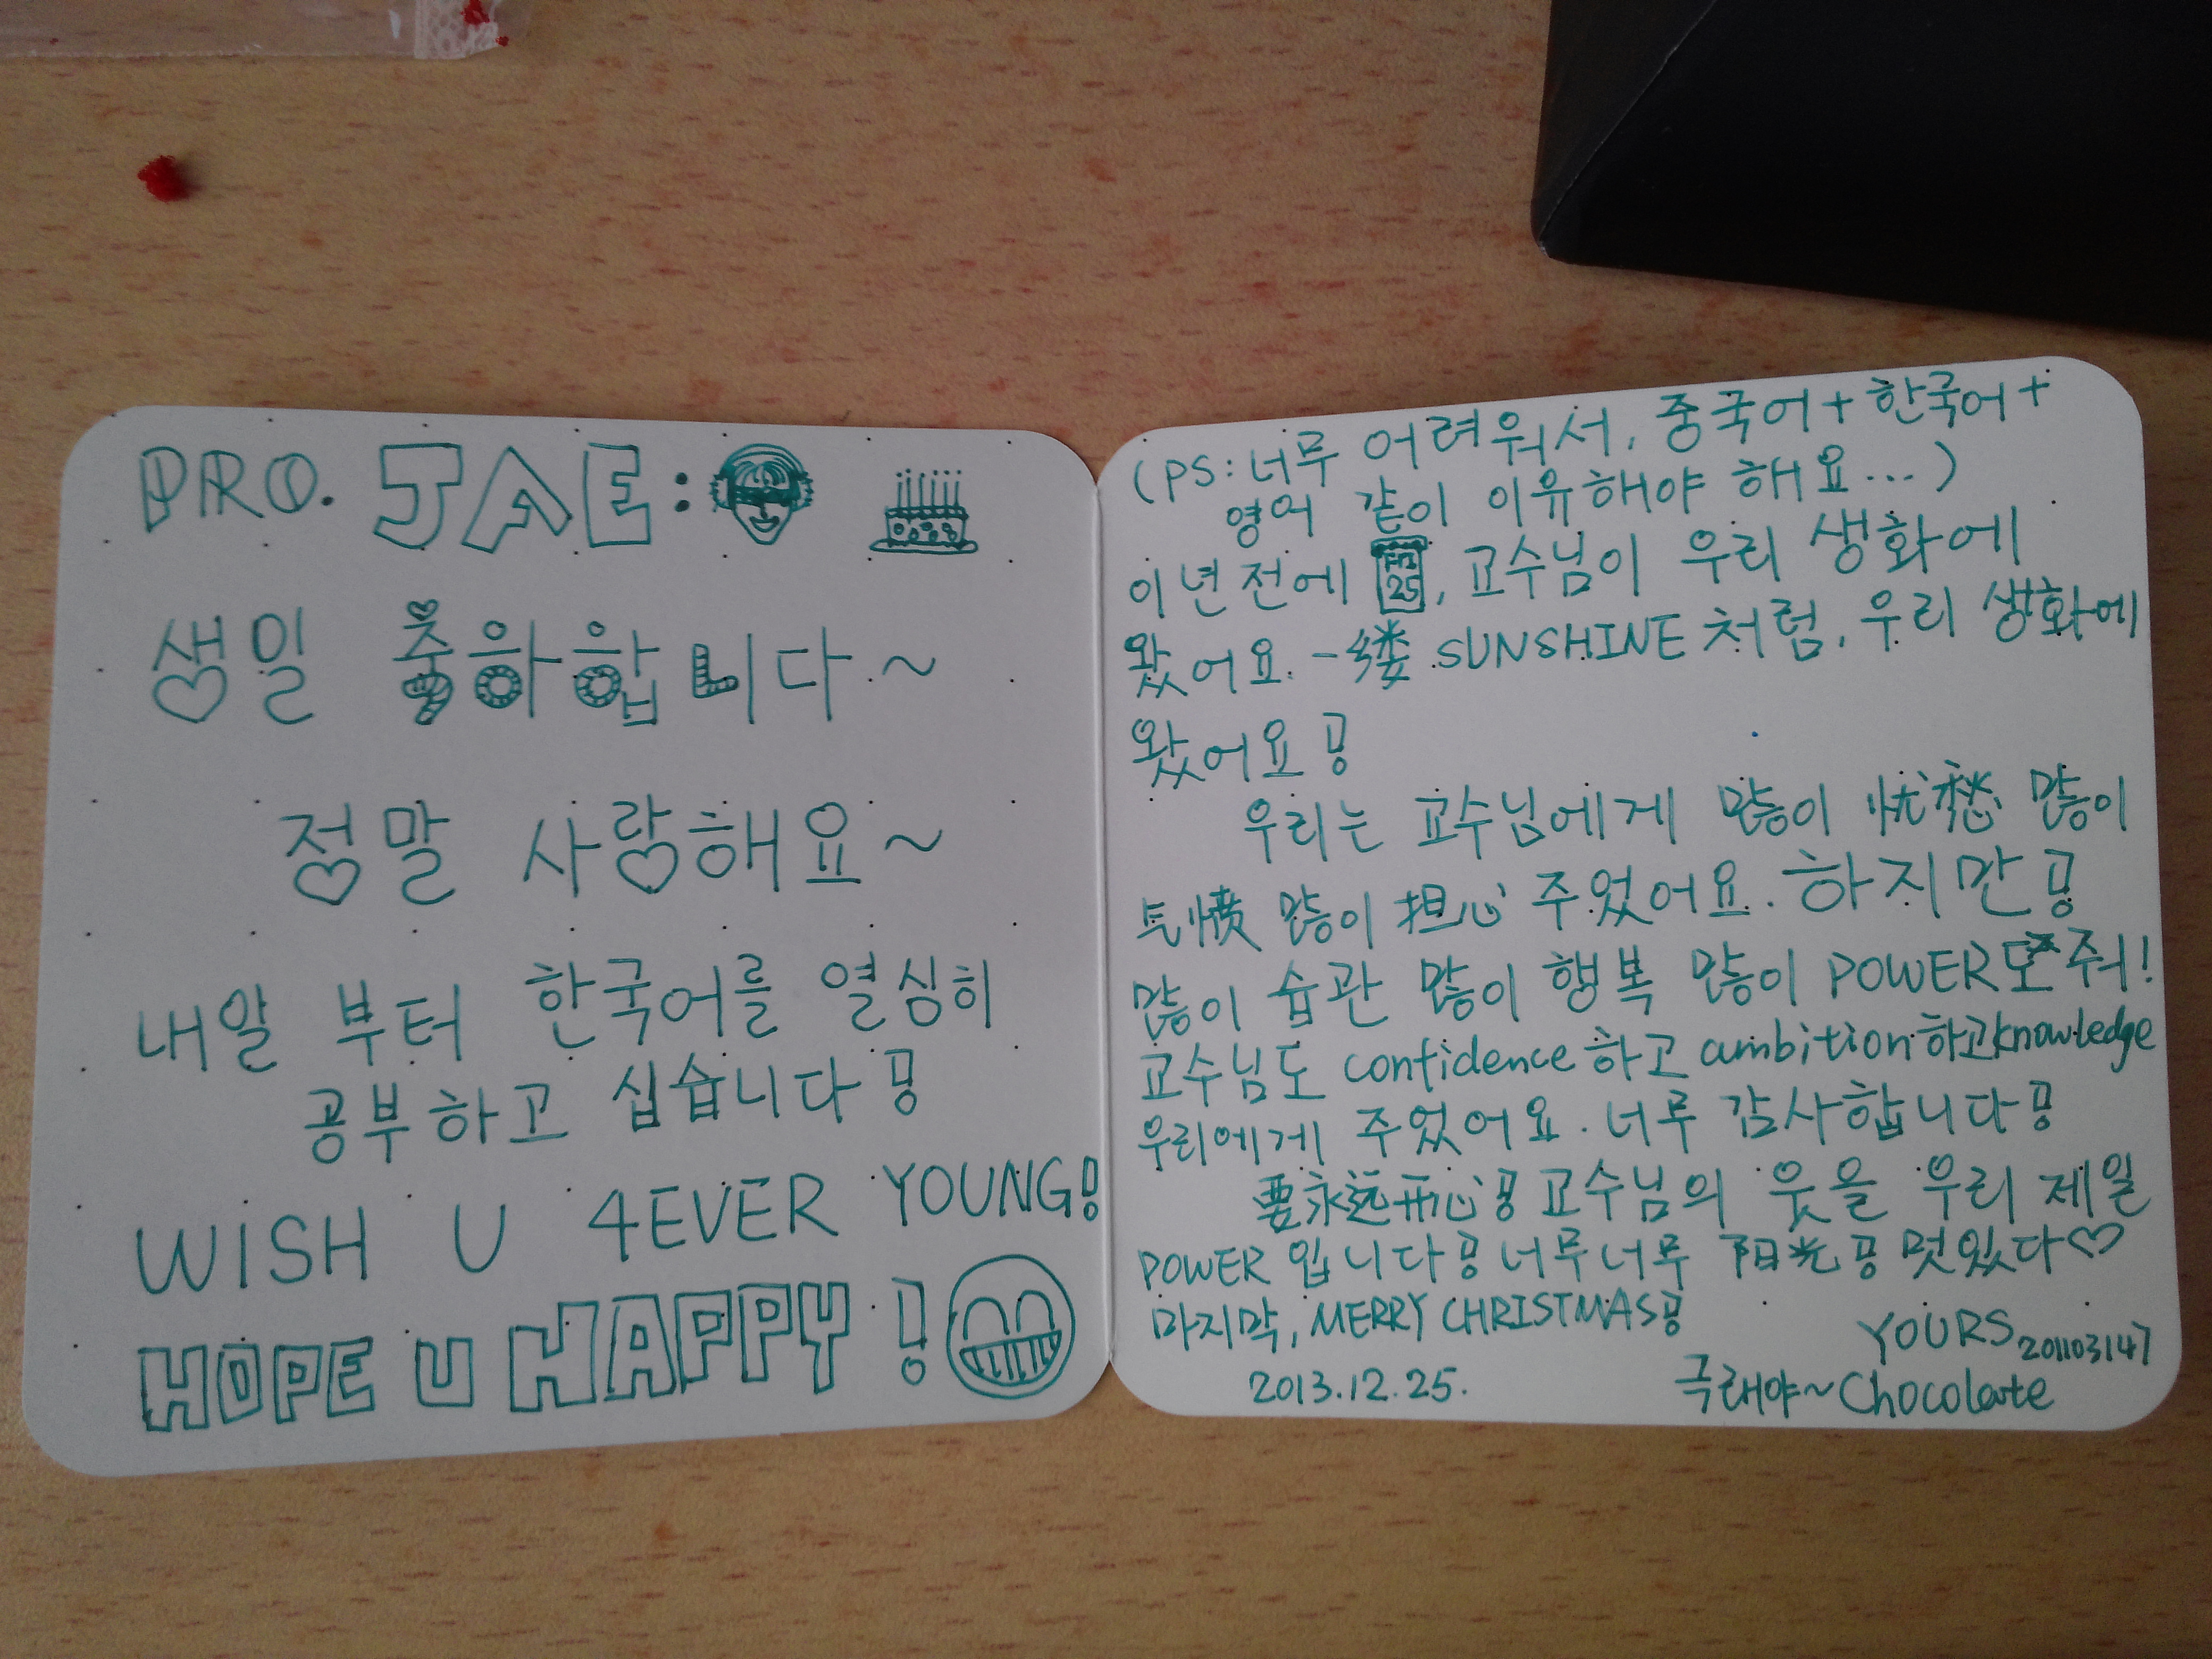 PRO. JAE:
생일 축하합니다~
정말 사랑해요~
내일 부터 한국어를 열심히
공부하고 십습니다!
WISH U 4EVER YOUNG!
HOPE U HAPPY!
(PS: 너무 어려워서, 중국어+한국어+
영어 같이 이유해야 해요...)
이년전에 25, 교수님이 우리 생화에
왔어요. 一缕 SUNSHINE처럼, 우리 생화에
왔어요!
우리는 교수님에게 많이 忧愁 많이
气愤 많이 担心 주었어요. 하지만!
많이 습관 많이 행복 많이 POWER 주워!
교수님도 confidence하고 ambition하고 knowledge
우리에게 주었어요. 너무 감사합니다!
要永远开心! 교수님의 웃을 우리 제일
POWER 입니다! 너무너무 阳光! 멋있다♡
마지막, MERRY CHRISTMAS!
YOURS 201103147
2013.12.25. 극래야~Chocolate